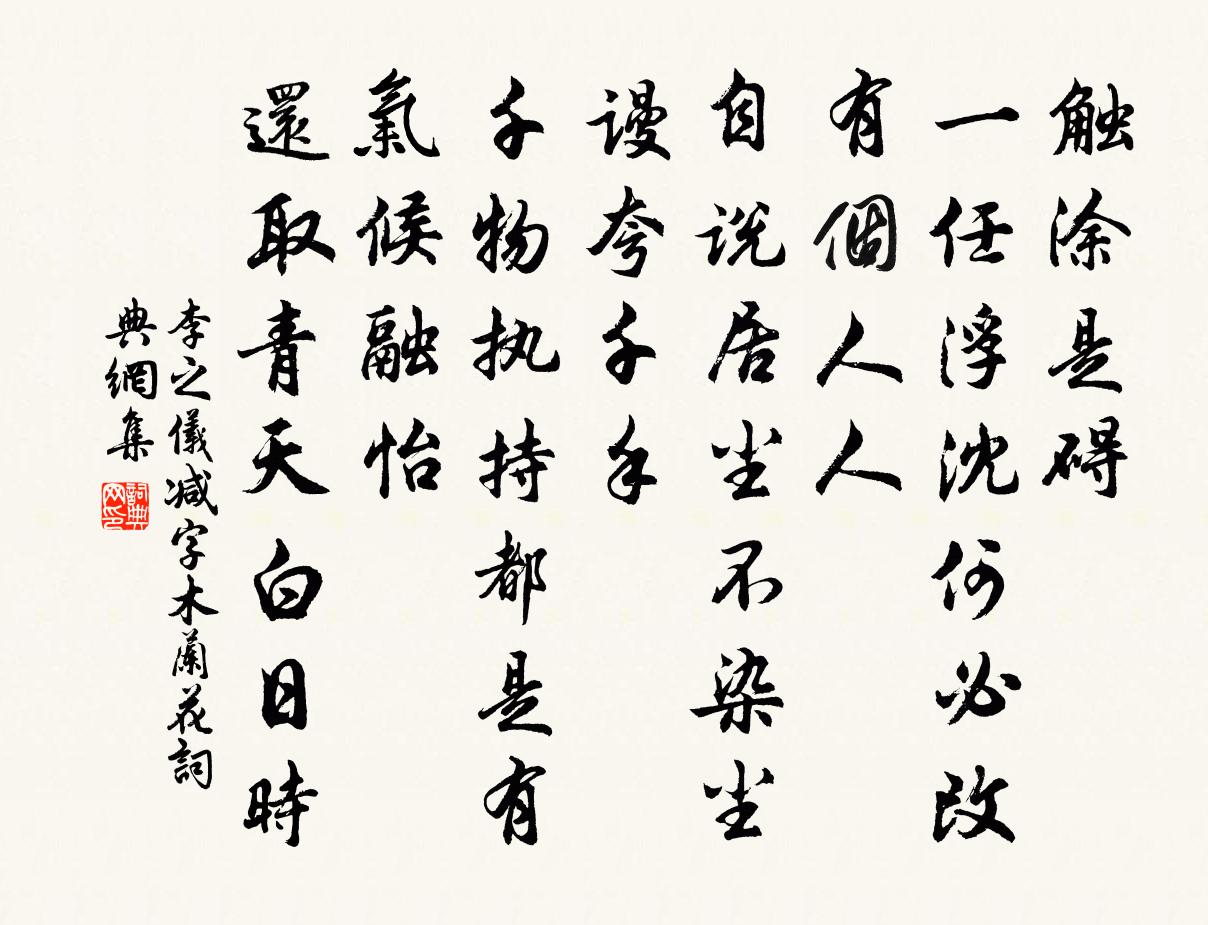 触涂是碍
一任浮沈何必改
有個人人
自说居尘不染尘
谩夸千手
千物执持都是有
氣候融怡
還取青天白日時
李之儀减字木蘭花詞
典網集
詞典网印